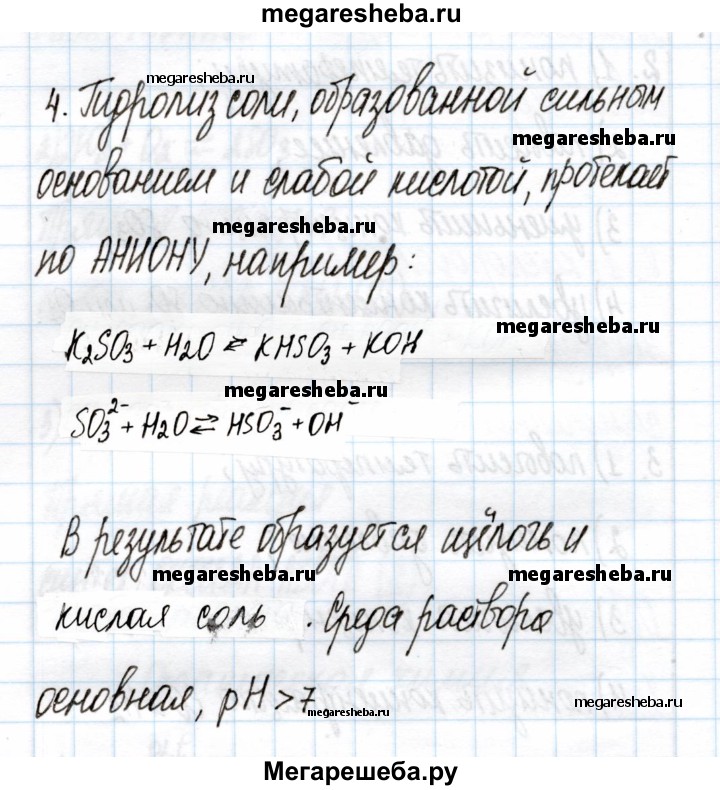 megaresheba.ru
megaresheba.ru
4. Гидролиз соли, образованной сильным
megaresheba.ru
основанием и слабой кислотой, протекает
megaresheba.ru
по АНИОНУ, например:
megaresheba.ru
K₂SO₃ + H₂O ⇄ KHSO₃ + KOH
megaresheba.ru
SO₃²⁻ + H₂O ⇄ HSO₃⁻ + OH⁻
В результате образуется щёлочь и
megaresheba.ru megaresheba.ru
кислая соль. Среда раствора
основная, pH > 7
megaresheba.ru
Мегарешеба.ру